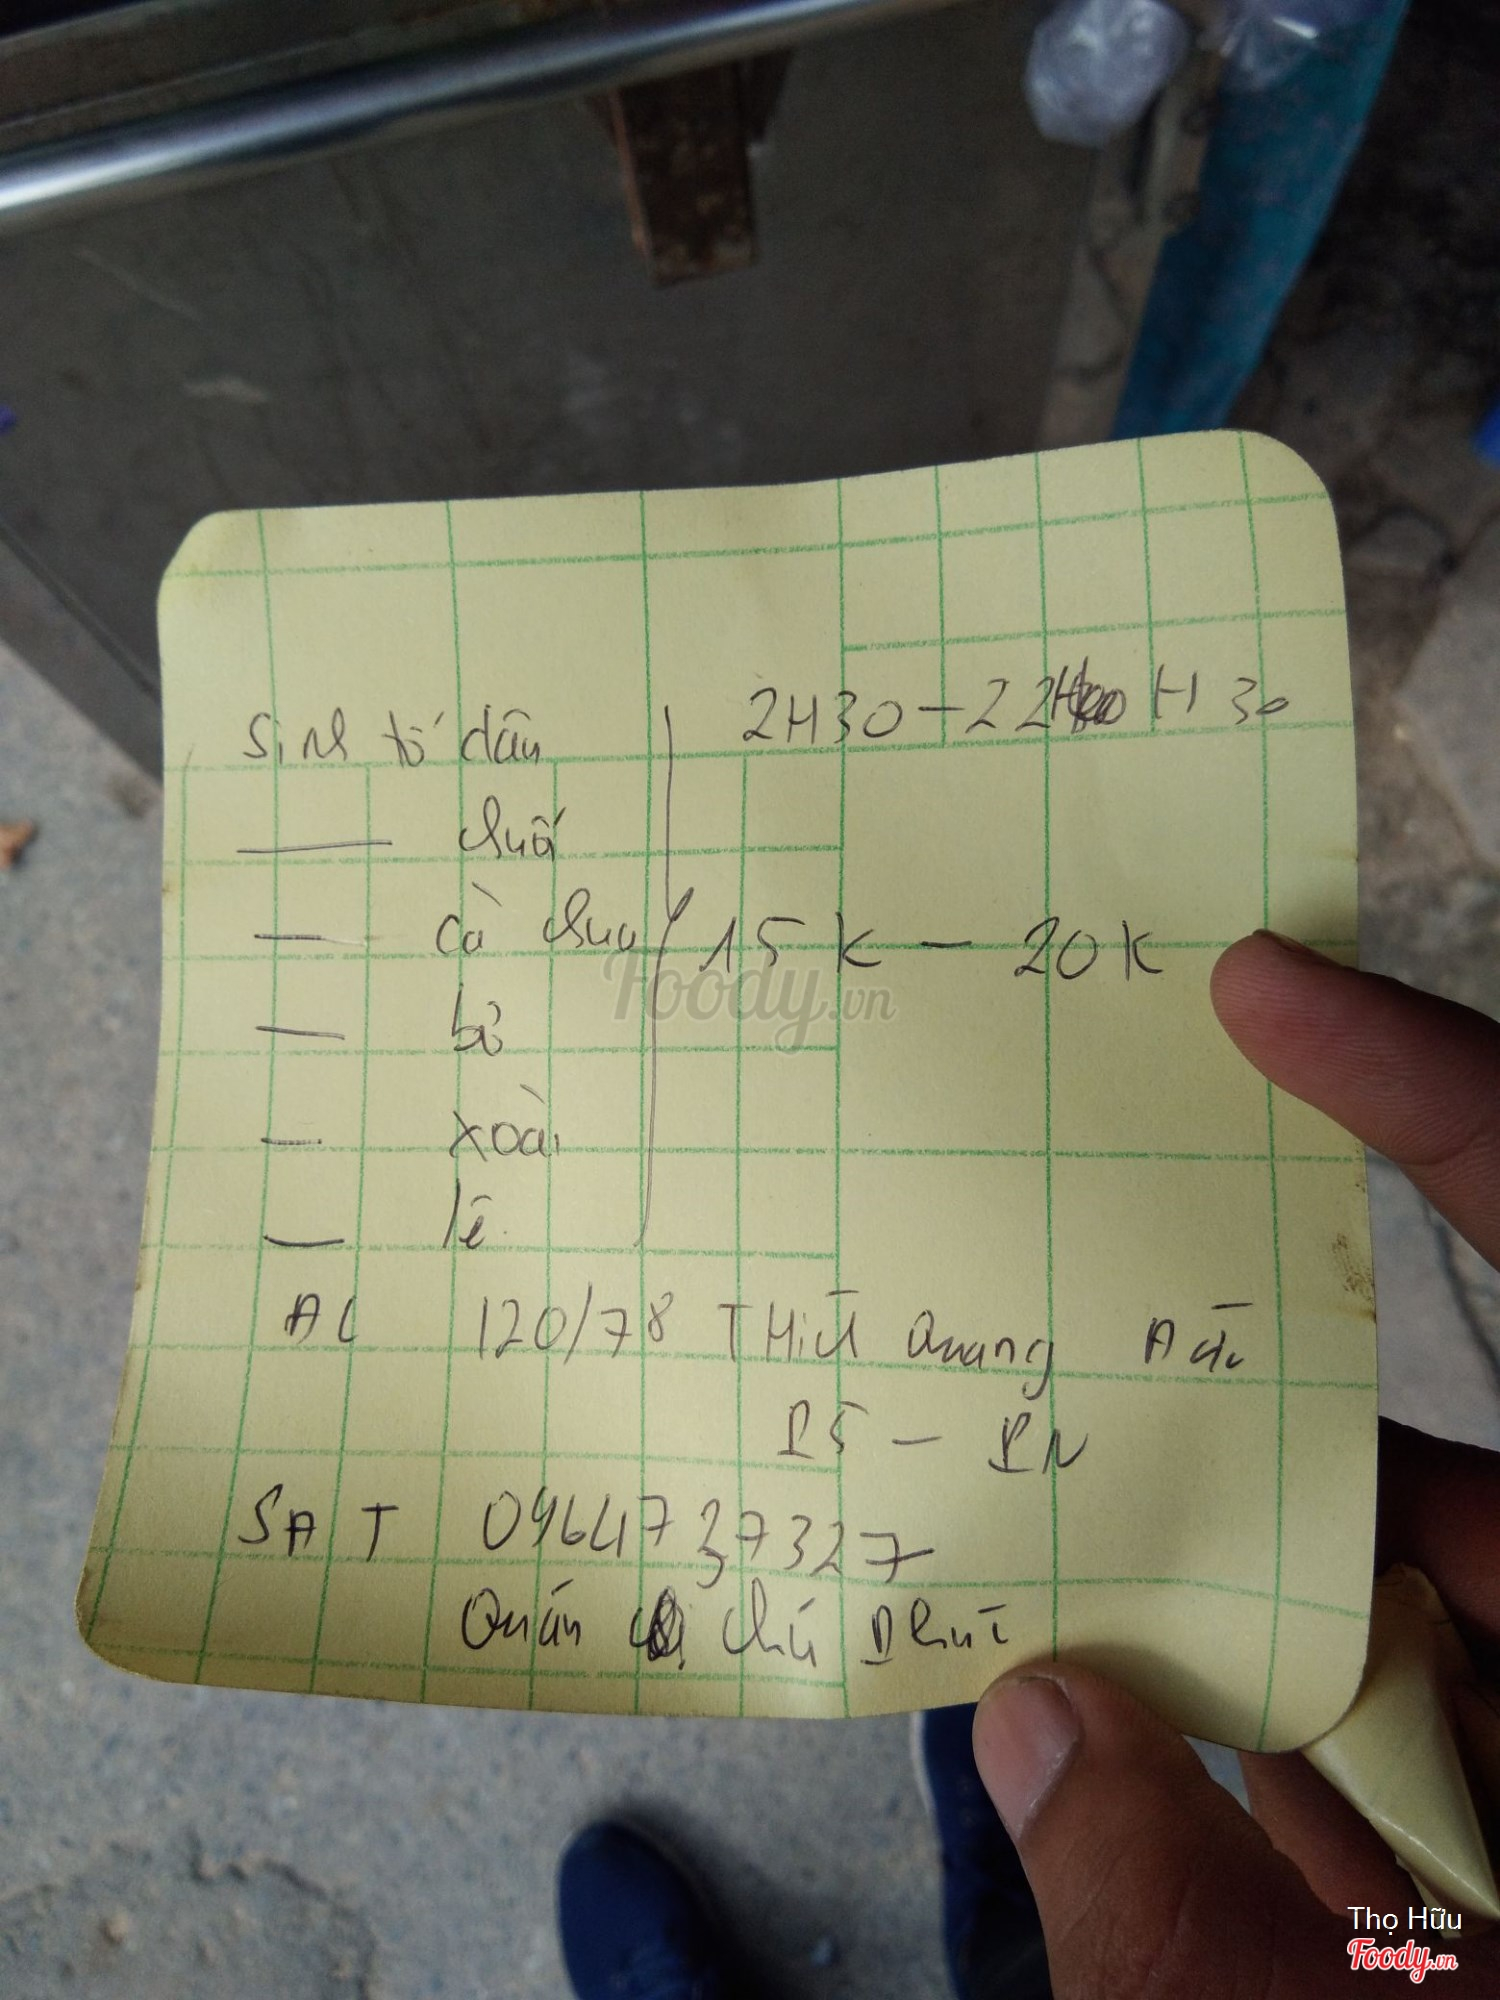 Sinh tố dâu
2H30 - 22 H30
— chuối
— cà chua
15K - 20K
— bơ
— xoài
— lê
ĐC 120/78 THích Quang Đức
P5 - PN
SĐT 0964737327
Quán chú Phúc
Foody.vn
Thọ Hữu
Foody.vn